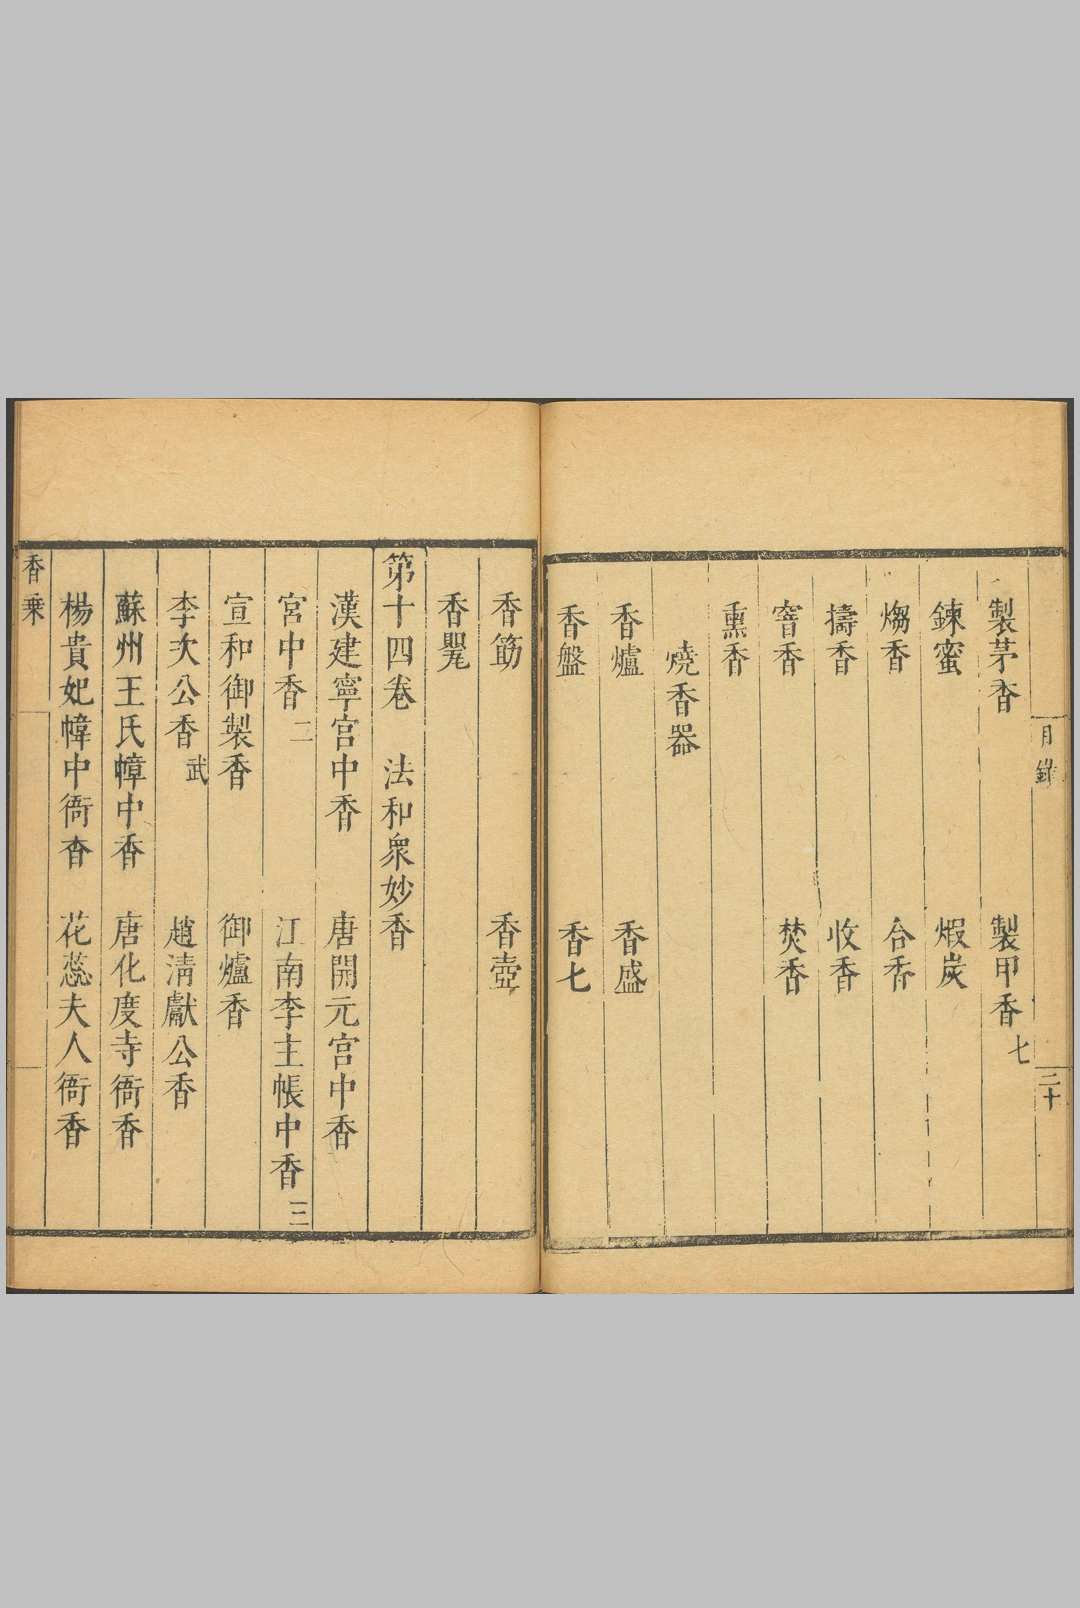 目錄
三十
製茅香　製甲香 七
鍊蜜　煆炭
煼香　合香
擣香　收香
窨香　焚香
熏香
燒香器
香爐　香盛
香盤　香七
香筯　香壺
香甖
第十四卷　法和衆妙香
漢建寧宮中香　唐開元宮中香
宮中香 二　江南李主帳中香 三
宣和御製香　御爐香
李次公香 武　趙清獻公香
蘇州王氏幃中香　唐化度寺衙香
楊貴妃幃中衙香　花蕊夫人衙香
香乗